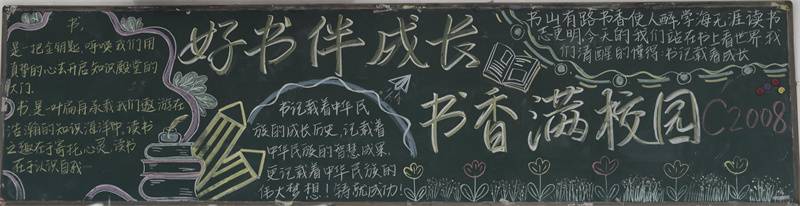 书,
是一把金钥匙,呼唤我们用
真挚的心去开启知识殿堂的
大门。
书,是一叶扁舟承载我们遨游在
浩瀚的知识海洋中,读书
之趣在于寄托心灵,读书
在于认识自我…
好书伴成长
书记载着中华民
族的成长历史,记载着
中华民族的智慧成果,
更记载着中华民族的
伟大梦想!铸就成功!
书山有路书香使人醉,学海无涯读书
志更明,今天的我们站在书上看世界,我
们清醒的懂得:书记载着成长
书香满校园
C2008